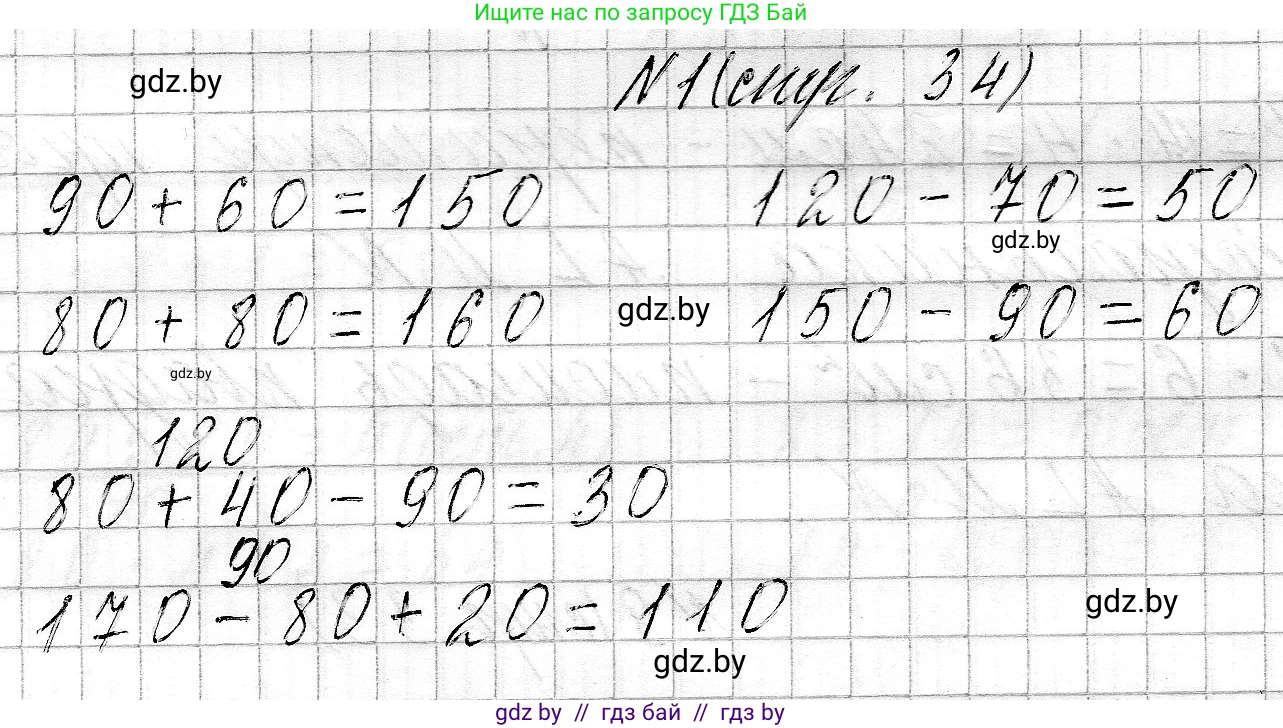 Ищите нас по запросу ГДЗ Бай
gdz.by
N1(стр. 34)
90 + 60 = 150 120 - 70 = 50
gdz.by
80 + 80 = 160 gdz.by 150 - 90 = 60
gdz.by
120
80 + 40 - 90 = 30
90
170 - 80 + 20 = 110
gdz.by
gdz.by
gdz by // гдз бай // гдз by